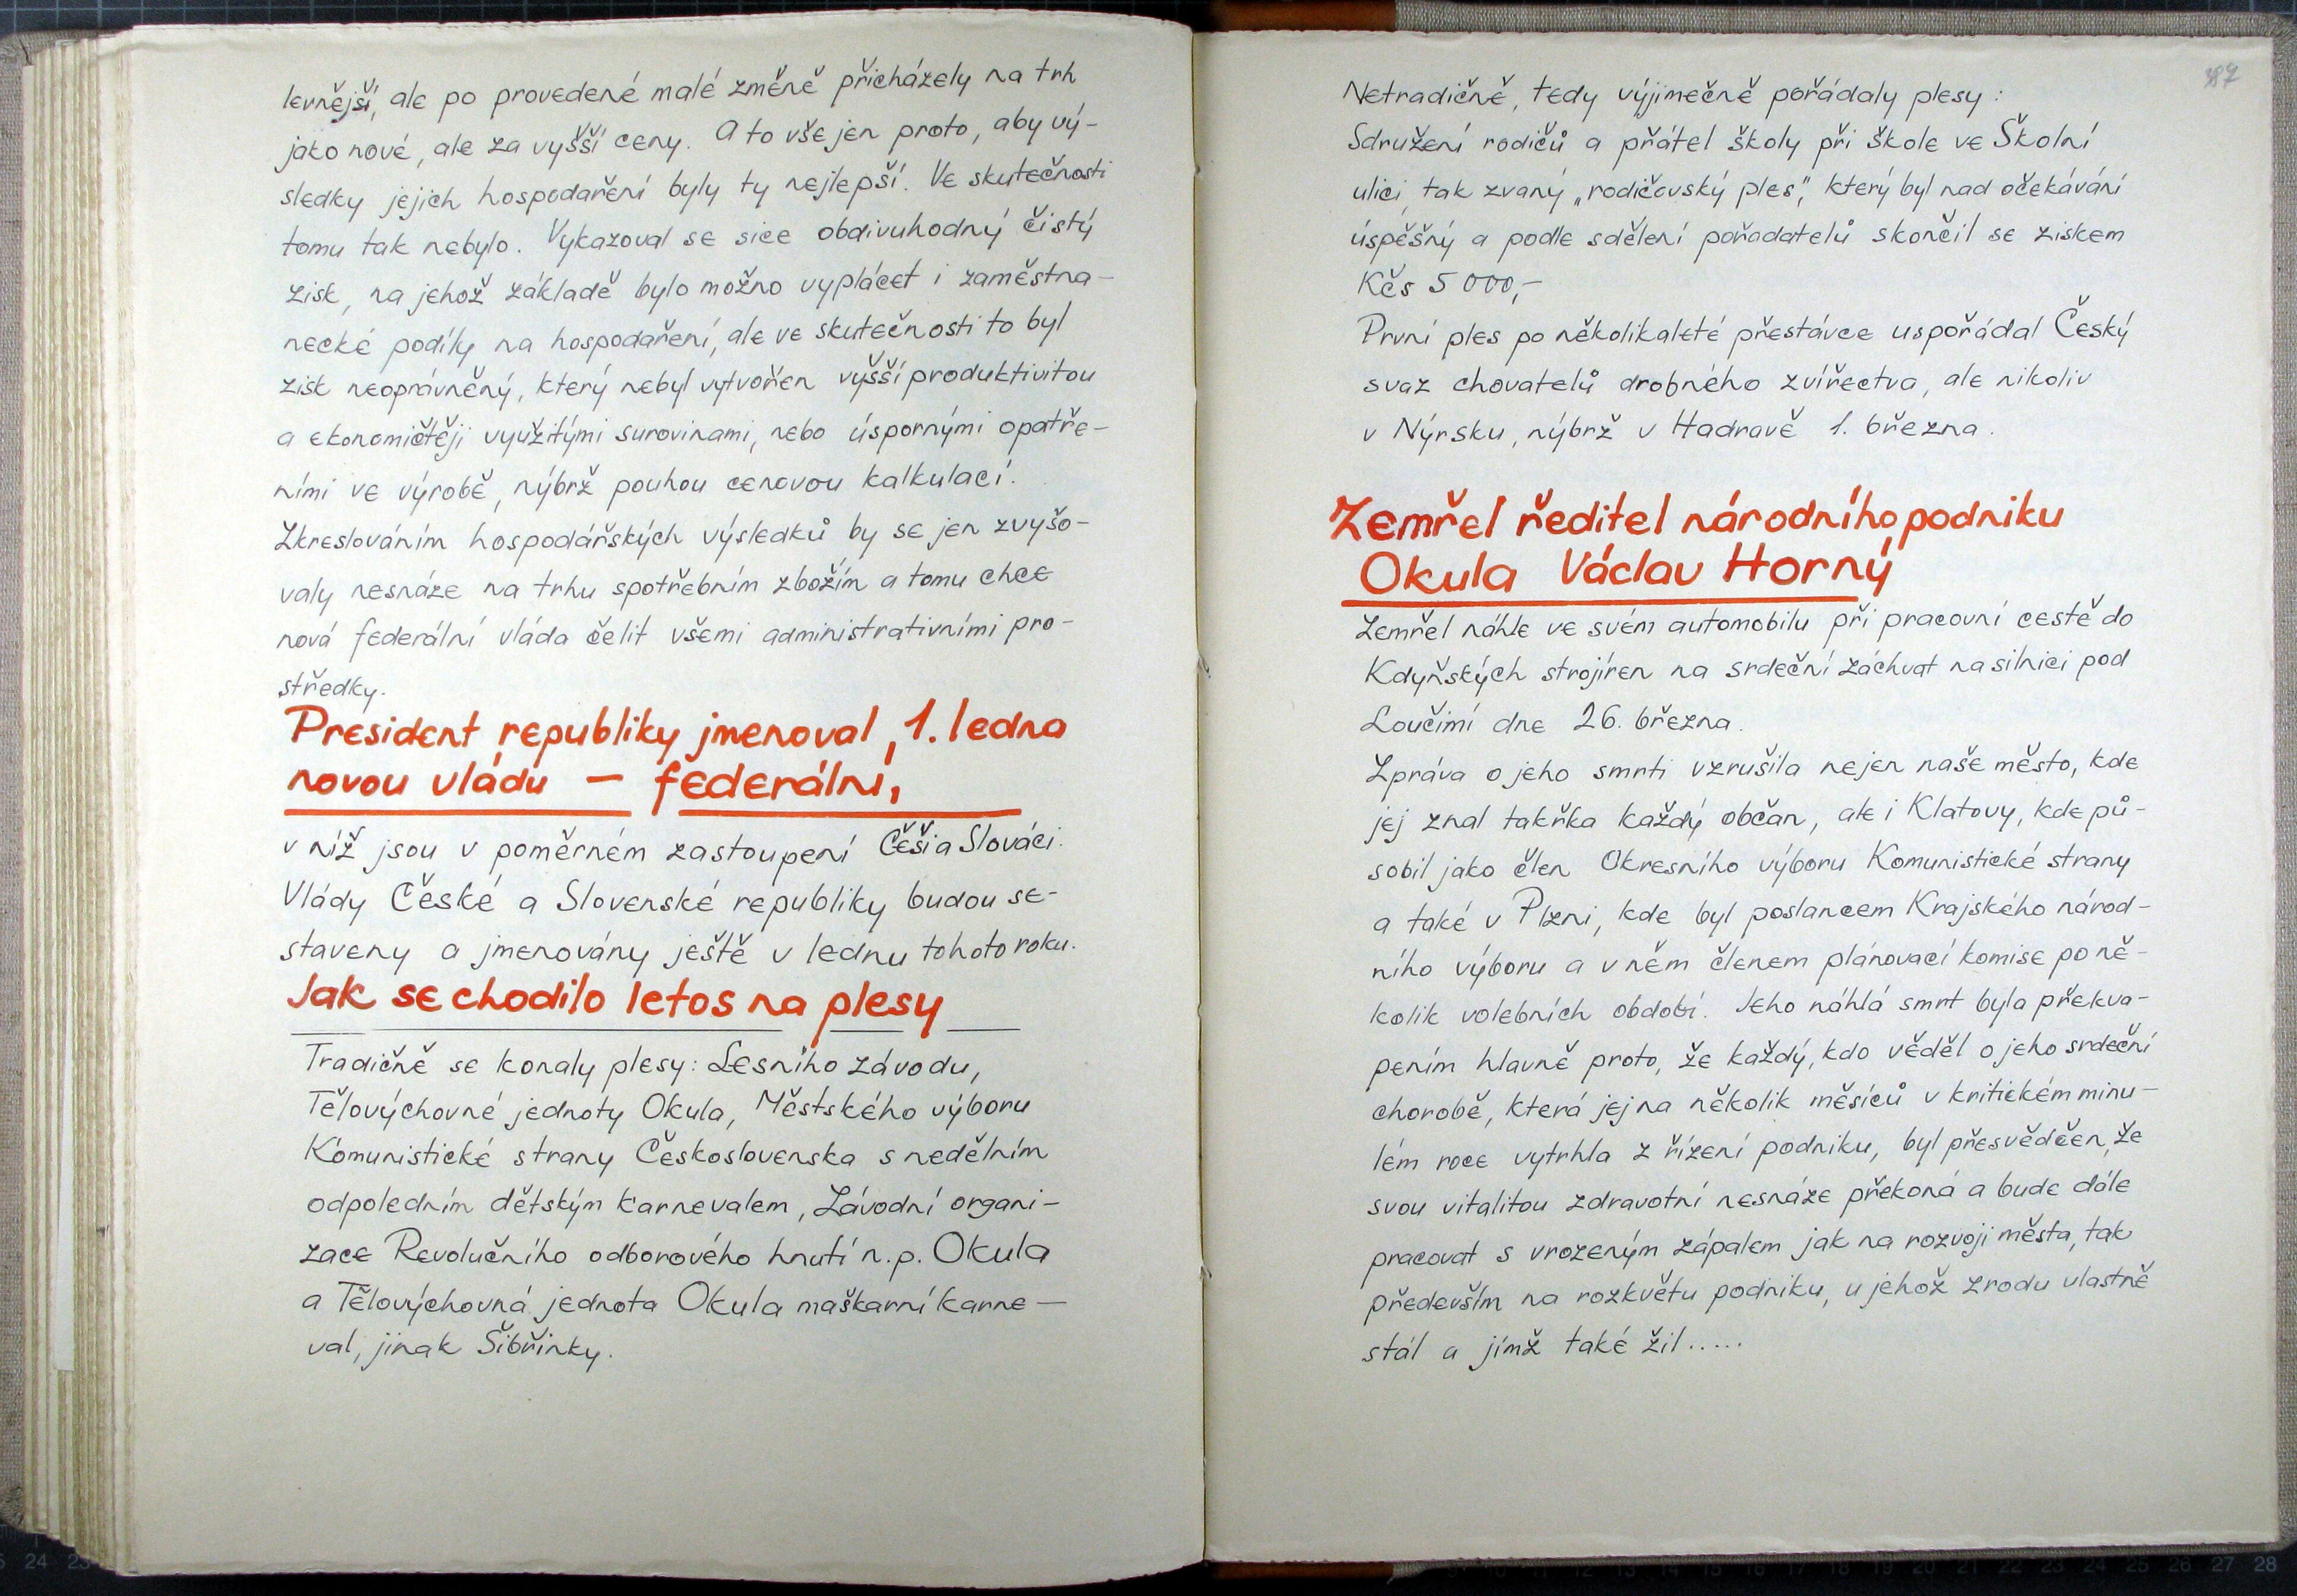 levnější, ale po provedené malé změně přicházely na trh
jako nové, ale za vyšší ceny. A to vše jen proto, aby vý-
sledky jejich hospodaření byly ty nejlepší. Ve skutečnosti
tomu tak nebylo. Vykazoval se sice obdivuhodný čistý
zisk, na jehož základě bylo možno vyplácet i zaměstna-
necké podíly na hospodaření, ale ve skutečnosti to byl
zisk neoprávněný, který nebyl vytvořen vyšší produktivitou
a ekonomičtěji využitými surovinami, nebo úspornými opatře-
ními ve výrobě, nýbrž pouhou cenovou kalkulací.
Zkreslováním hospodářských výsledků by se jen zvyšo-
valy nesnáze na trhu spotřebním zbožím a tomu chce
nová federální vláda čelit všemi administrativními pro-
středky.
President republiky jmenoval, 1. ledna
novou vládu — federální,
v níž jsou v poměrném zastoupení Češi a Slováci.
Vlády České a Slovenské republiky budou se-
staveny a jmenovány ještě v lednu tohoto roku.
Jak se chodilo letos na plesy
Tradičně se konaly plesy: Lesního závodu,
Tělovýchovné jednoty Okula, Městského výboru
Komunistické strany Československa s nedělním
odpoledním dětským karnevalem, Závodní organi-
zace Revolučního odborového hnutí n.p. Okula
a Tělovýchovná jednota Okula maškarní karne—
val, jinak Šibřinky.
387
Netradičně, tedy výjimečně pořádaly plesy:
Sdružení rodičů a přátel školy při škole ve Školní
ulici, tak zvaný „rodičovský ples," který byl nad očekávání
úspěšný a podle sdělení pořadatelů skončil se ziskem
Kčs 5 000,-
První ples po několikaleté přestávce uspořádal Český
svaz chovatelů drobného zvířectva, ale nikoliv
v Nýrsku, nýbrž v Hadravě 1. března.
Zemřel ředitel národního podniku
Okula Václav Horný
Zemřel náhle ve svém automobilu při pracovní cestě do
Kdyňských strojíren na srdeční záchvat na silnici pod
Loučimí dne 26. března.
Zpráva o jeho smrti vzrušila nejen naše město, kde
jej znal takřka každý občan, ale i Klatovy, kde pů-
sobil jako člen Okresního výboru Komunistické strany
a také v Plzni, kde byl poslancem Krajského národ-
ního výboru a v něm členem plánovací komise po ně-
kolik volebních období. Jeho náhlá smrt byla překva-
pením hlavně proto, že každý, kdo věděl o jeho srdeční
chorobě, která jej na několik měsíců v kritickém minu-
lém roce vytrhla z řízení podniku, byl přesvědčen, že
svou vitalitou zdravotní nesnáze překoná a bude dále
pracovat s vrozeným zápalem jak na rozvoji města, tak
především na rozkvětu podniku, u jehož zrodu vlastně
stál a jímž také žil.....